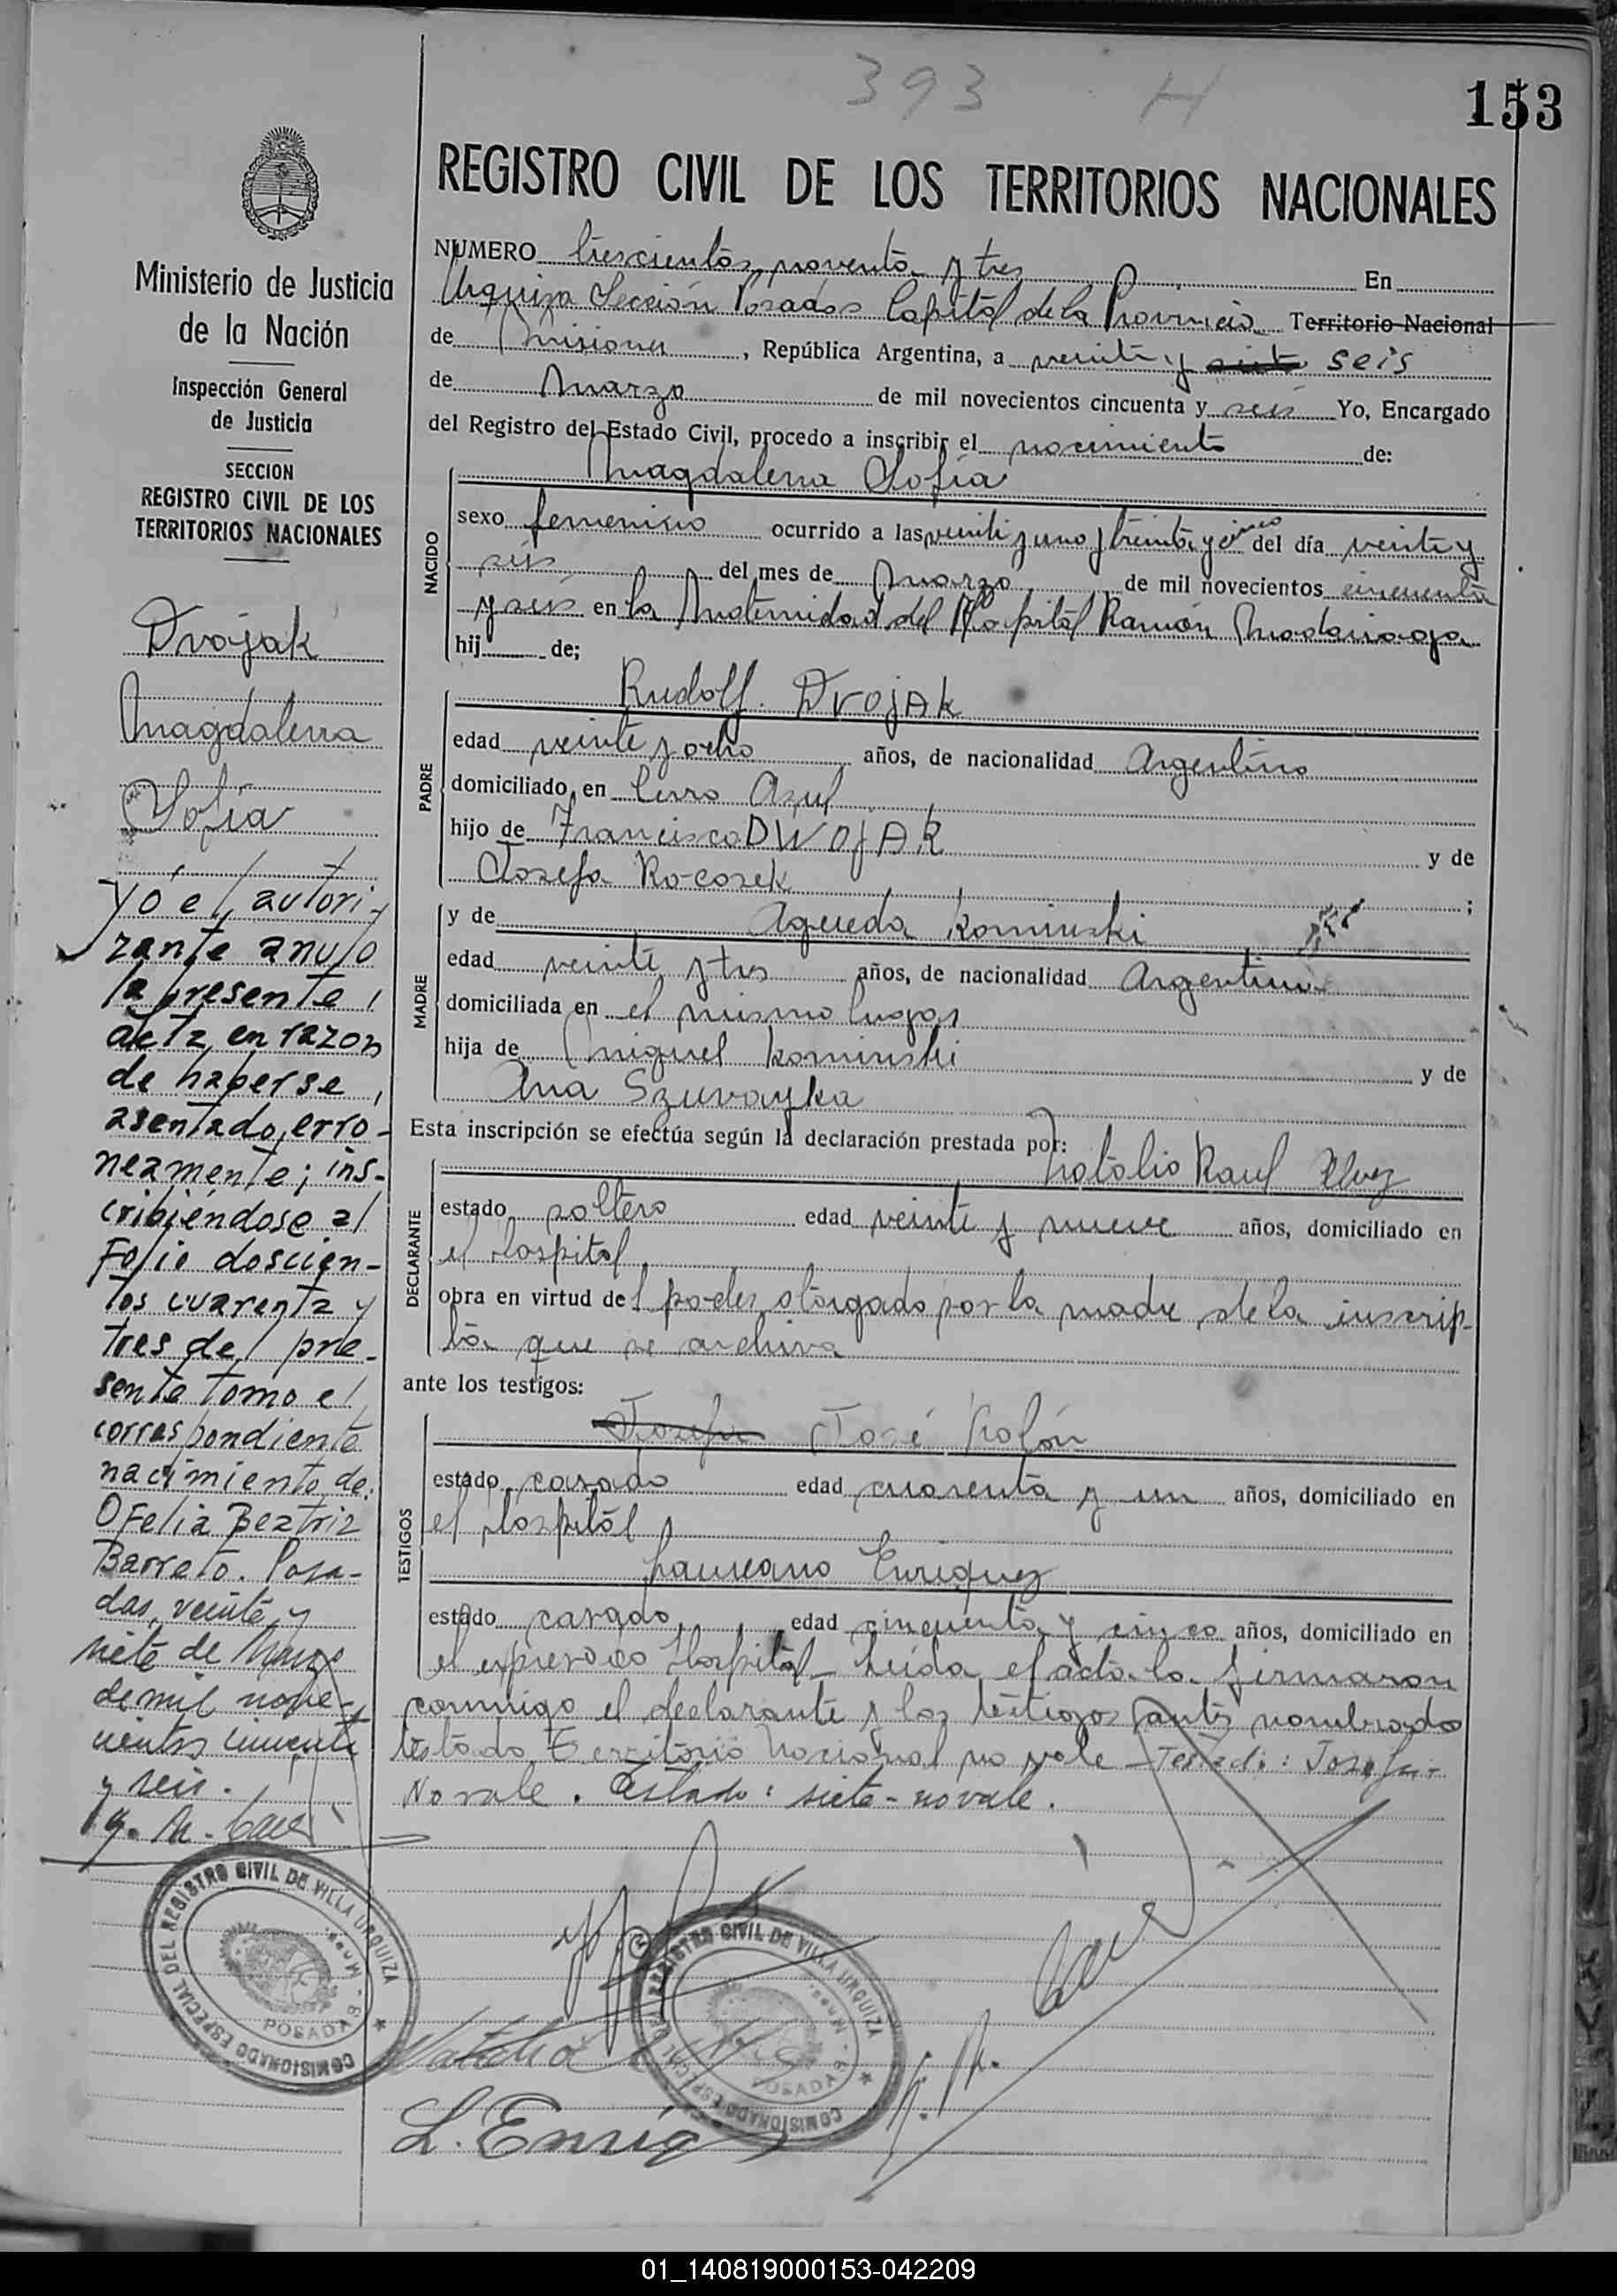 393 H
153
REGISTRO CIVIL DE LOS TERRITORIOS NACIONALES
Ministerio de Justicia
de la Nación
Inspección General
de Justicia
SECCION
REGISTRO CIVIL DE LOS
TERRITORIOS NACIONALES
Dvojak
Magdalena
Sofía
Yo el autori-
zante anulo
la presente
acta, en razon
de haberse
asentado, erro-
neamente; ins-
cribiéndose al
Folio doscien-
tos cuarenta y
tres del pre-
sente tomo el
correspondiente
nacimiento de:
Ofelia Beatriz
Barreto. Posa-
das, veinte y
siete de Marzo
de mil nove-
cientos cincuenta
y seis.
NUMERO trescientos noventa y tres En
Urquiza Sección Posadas Capital de la Provincia Territorio Nacional
de Misiones, República Argentina, a veinte y siete seis
de Marzo de mil novecientos cincuenta y seis Yo, Encargado
del Registro del Estado Civil, procedo a inscribir el nacimiento de:
NACIDO
Magdalena Sofía
sexo femenino ocurrido a las veinte y uno y treinta y cinco del día veinte y
seis del mes de Marzo de mil novecientos cincuenta
y seis en la Maternidad del Hospital Ramón Madariaga
hij de;
PADRE
Rudolf Dvojak
edad veinte y ocho años, de nacionalidad Argentino
domiciliado en Cerro Azul
hijo de Francisco DWOJAK y de
Josefa Rocosek ;
MADRE
y de Agueda Kominski
edad veinte y tres años, de nacionalidad Argentina
domiciliada en el mismo lugar
hija de Miguel Kominski y de
Ana Szuvayka
Esta inscripción se efectúa según la declaración prestada por:
DECLARANTE
Natalio Raul
estado soltero edad veinte y nueve años, domiciliado en
el Hospital
obra en virtud del poder otorgado por la madre de la inscrip-
ta que se archiva
ante los testigos:
TESTIGOS
Josefu José Kolón
estado casado edad cuarenta y un años, domiciliado en
el Hospital
Laureano Enriquez
estado casado edad cincuenta y cinco años, domiciliado en
el expresado Hospital - Leída el acta la firmaron
conmigo el declarante y los testigos antes nombrado
testado Territorio Nacional no vale - Testado: Josefu-
No vale. Testado: siete - no vale.
COMISIONADO ESPECIAL DEL REGISTRO CIVIL DE VILLA URQUIZA
POSADAS - Mnes.
COMISIONADO ESPECIAL DEL REGISTRO CIVIL DE VILLA URQUIZA
POSADAS - Mnes.
Natalio
L. Enriq
01_140819000153-042209